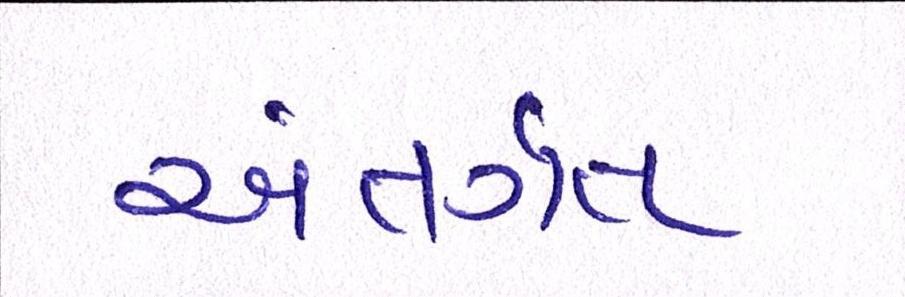 અંતર્ગત